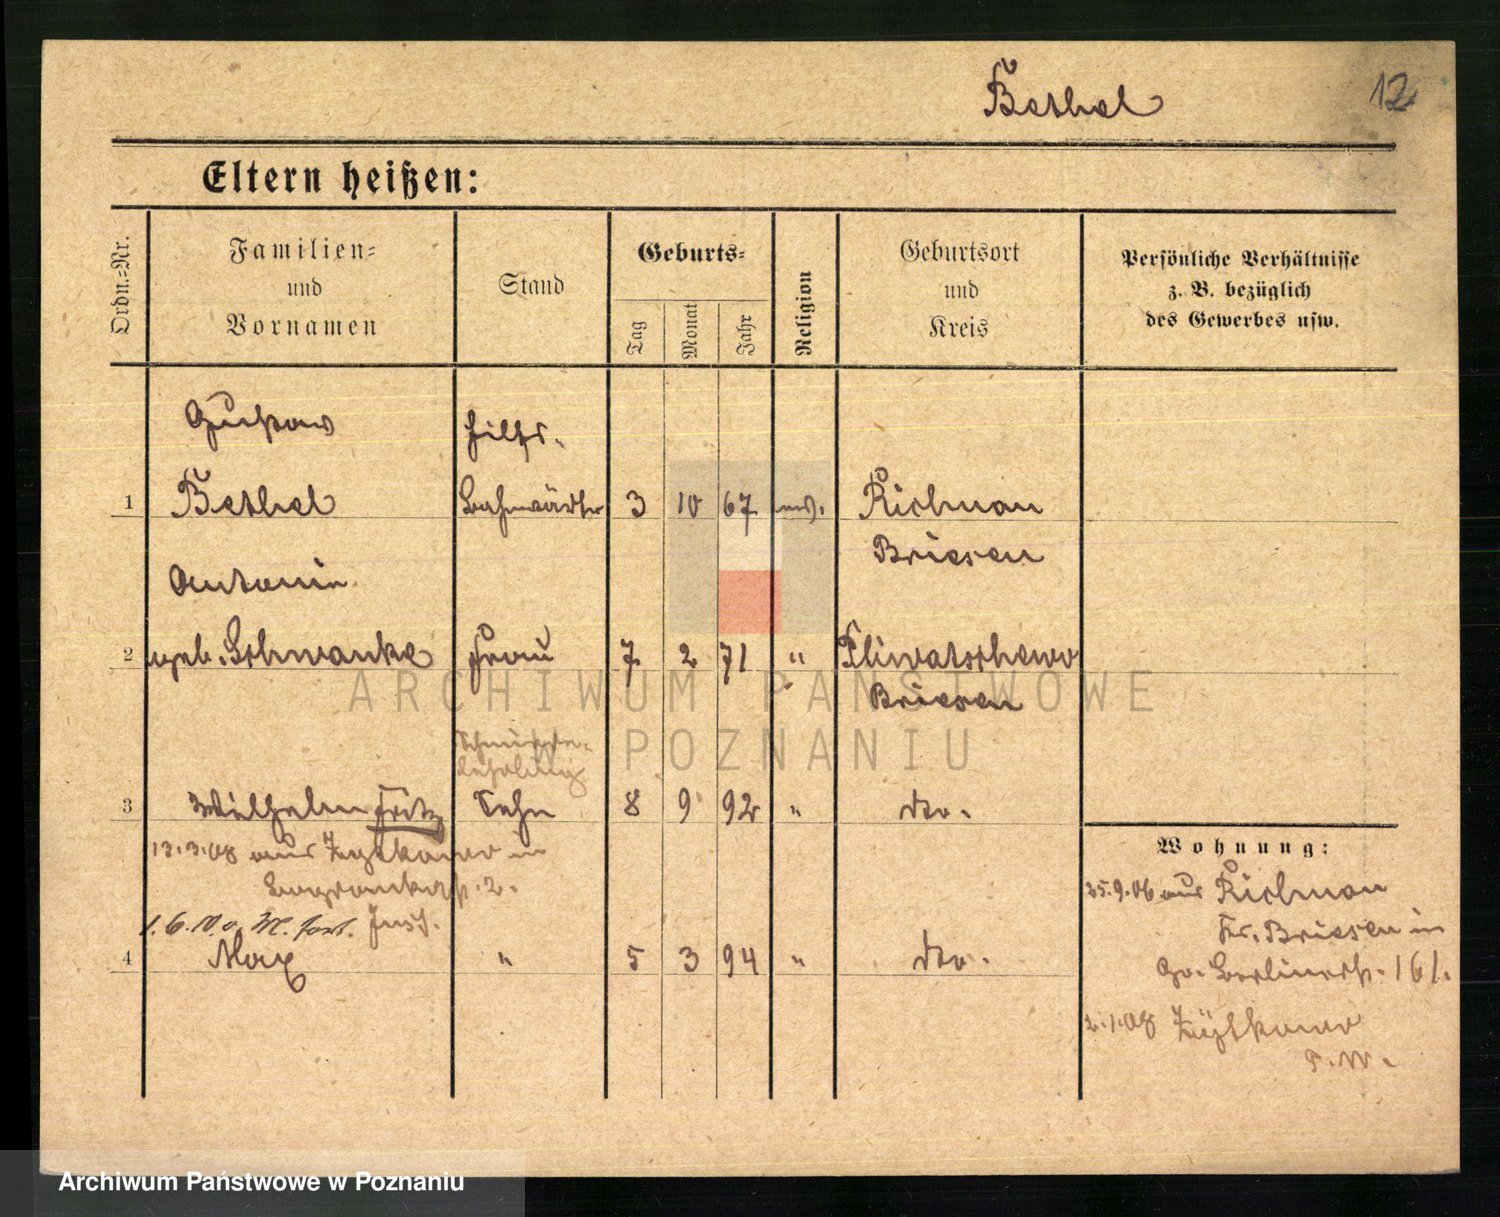 Bethel
12
Eltern heißen:
Ordn.-Nr.
Familien-
und
Vornamen
Stand
Geburts-
Tag
Monat
Jahr
Religion
Geburtsort
und
Kreis
Persönliche Verhältnisse
z. B. bezüglich
des Gewerbes usw.
Gustaw Hilfs-
1 Bethel Bahnwärter 3 10 67 Richnau
Briesen
Antonie
2 geb. Schwanke Frau 7 2 71 "
Briesen
ARCHIWUM PAŃSTWOWE
W POZNANIU
3 Wilhelm Fritz Sohn 8 9 92 " do.
13.3.08 aus in
2.
1.6.10
4 Max " 5 3 94 " do.
Wohnung:
25.9.06 aus Richnau
Kr. Briesen in
Berlinerstr. 161.
2.1.08
Archiwum Państwowe w Poznaniu